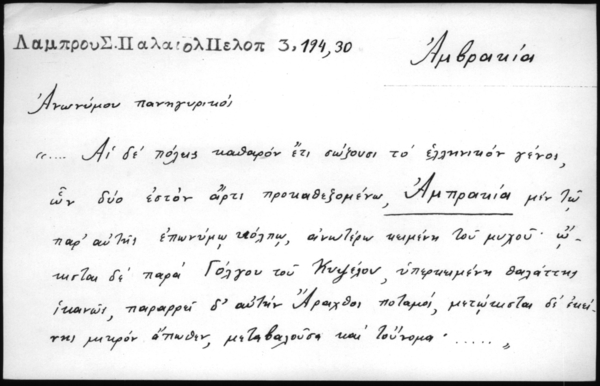 ΛαμπρουΣ.ΠαλαιολΠελοπ 3,194,30
Ἀμβρακία
Ἀνωνύμου πανηγυρικοί
«.... Αἱ δέ πόλεις καθαρόν ἔτι σώζουσι τό ἑλληνικόν γένος,
ὧν δύο ἐστόν ἄρτι προκαθεζομένω, Ἀμπρακία μέν τῷ
παρ' αὐτῆς ἐπωνύμῳ κόλπῳ, ἀνωτέρω κειμένη τοῦ μυχοῦ· ᾤ-
κισται δέ παρά Γόλγου τοῦ Κυψέλου, ὑπερκειμένη θαλάττης
ἱκανῶς, παραρρεῖ δ' αὐτήν Ἄραχθος ποταμός, μετῴκισται δέ ἐκεί-
νης μικρόν ἄπωθεν, μεταβαλοῦσα καί τοὔνομα· ..... »